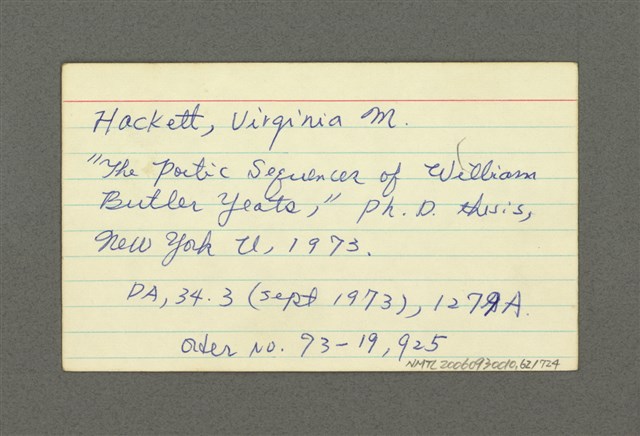 Hackett, Virginia M.
"The Poetic Sequences of William
Butler Yeats," Ph. D. thesis,
New York U, 1973.
DA, 34.3 (Sept 1973), 1279A.
Order no. 73-19,925
NMTL20060930010,621724